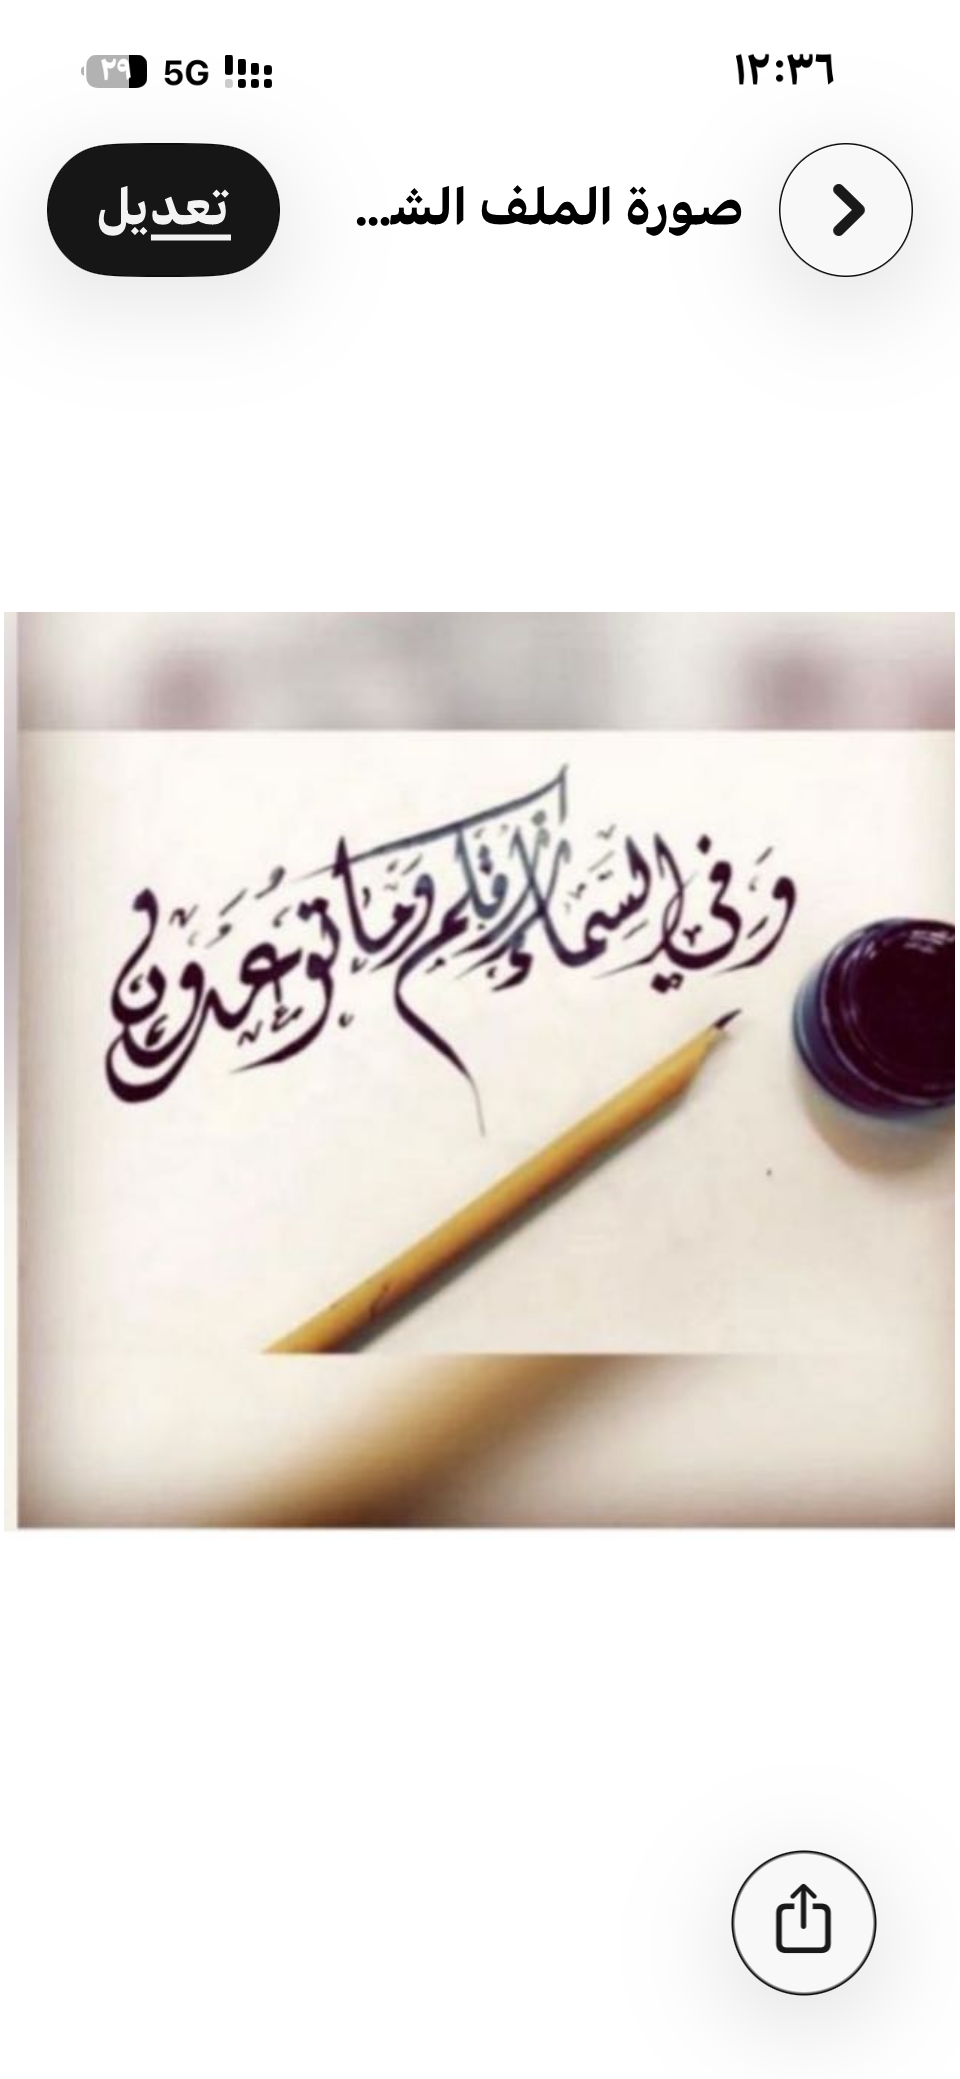 ١٢:٣٦ 5G ٢٩
صورة الملف الشـ... تعديل
وَفِي السَّمَاءِ رِزْقُكُمْ وَمَا تُوعَدُونَ